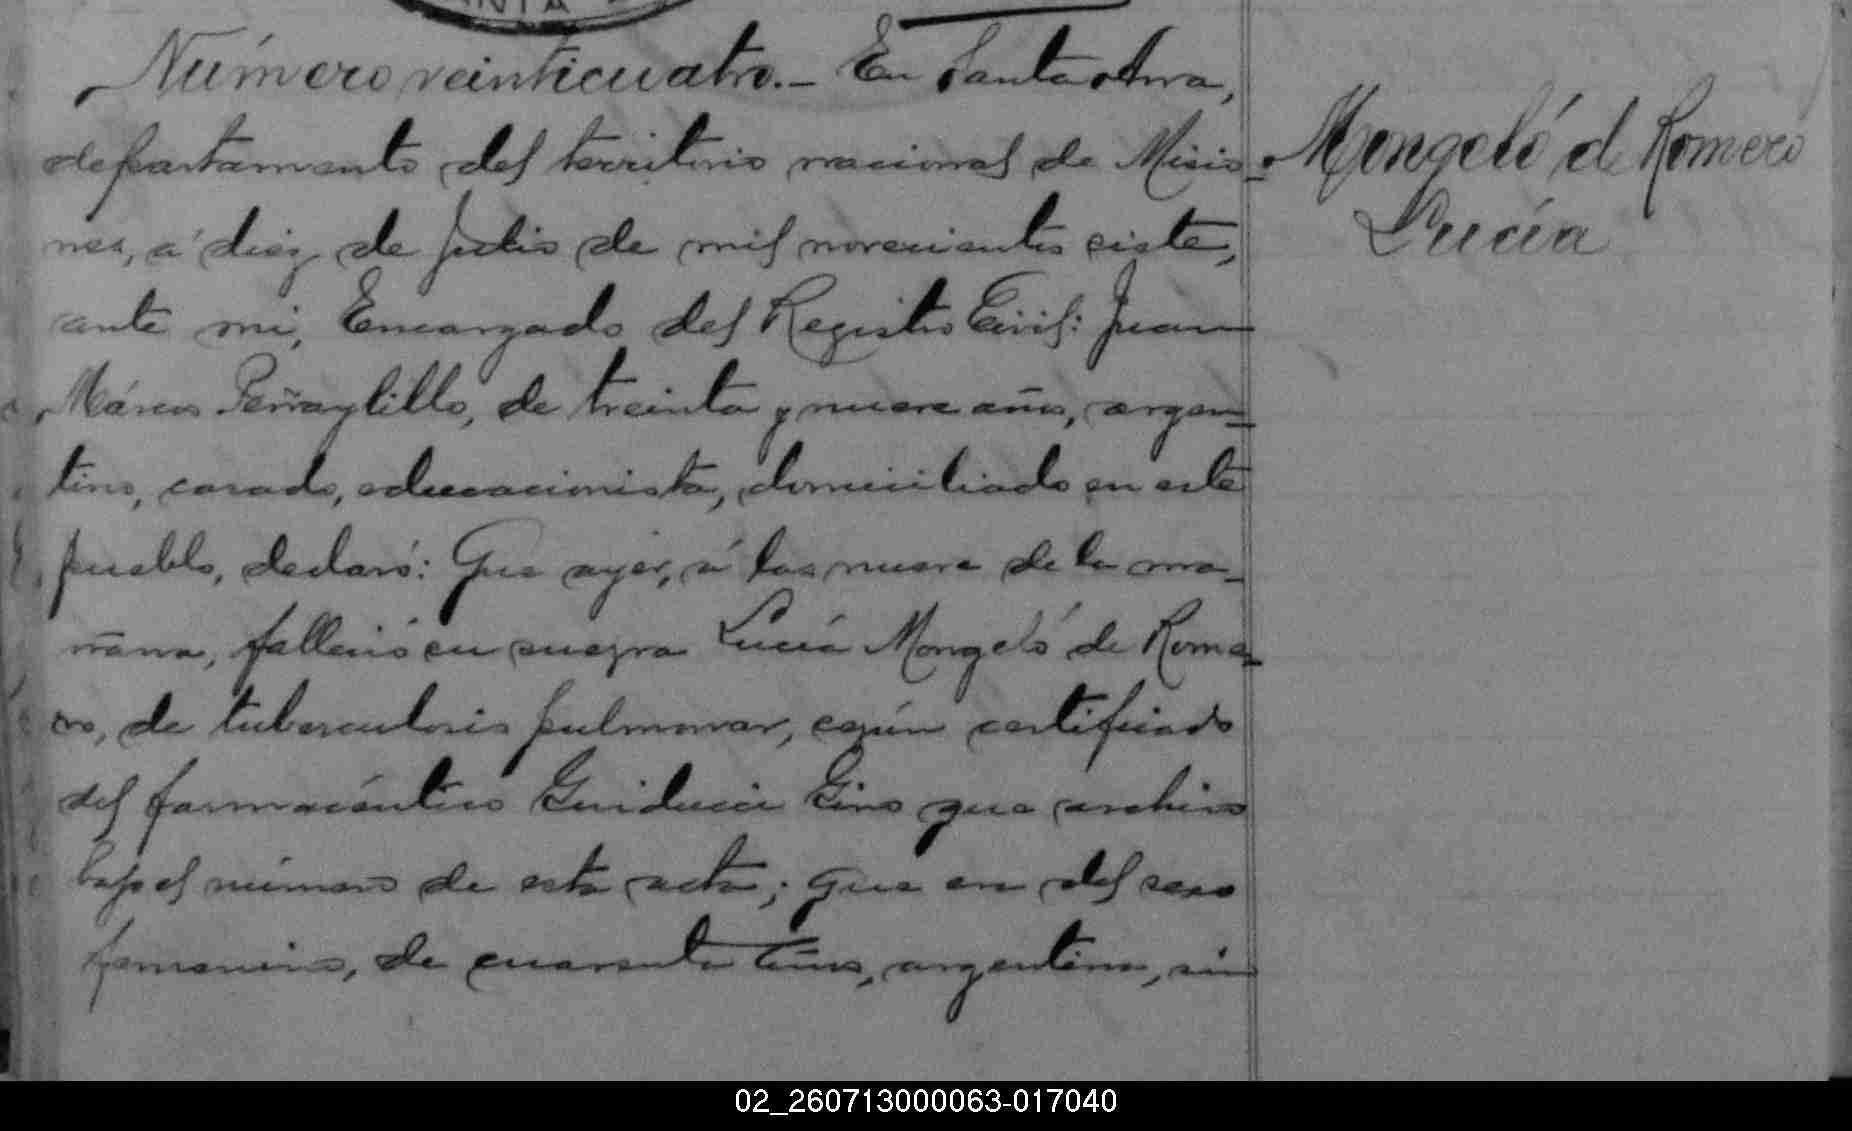 Número veinticuatro.- En Santa Ana,
departamento del territorio nacional de Misio-
nes, á diez de Julio de mil novecientos siete,
ante mi, Encargado del Registro Civil: Juan
Márcos de treinta y nueve años, argen-
tino, casado, educacionista, domiciliado en este
pueblo, declaró: Que ayer, á las nueve de la ma-
ñana, falleció su suegra Lucía Mongeló de Rome-
ro, de tuberculosis pulmonar, según certificado
del farmacéutico Guiducci Gino que archivo
bajo el número de esta acta; que era del sexo
femenino, de cuarenta años, argentina, sin
Mongeló de Romero
Lucía
02_260713000063-017040